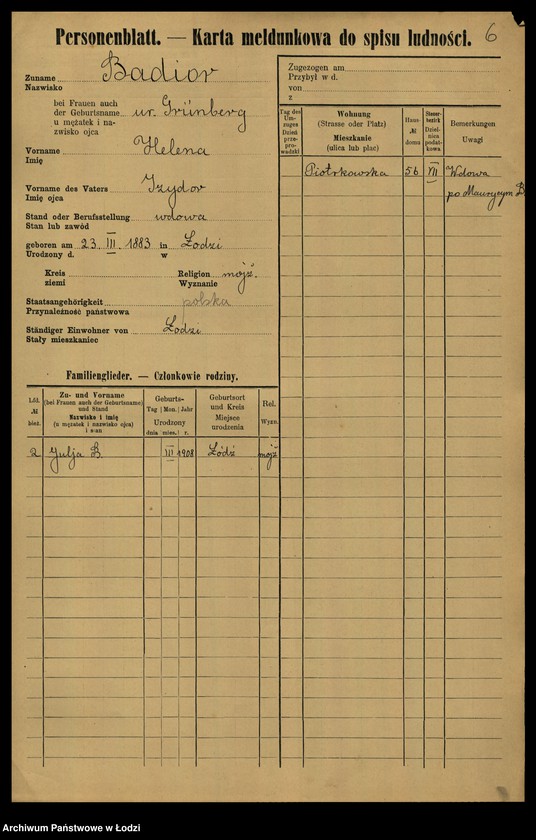 6
Personenblatt. — Karta meldunkowa do spisu ludności.
Zuname Badior
Nazwisko
bei Frauen auch
der Geburtsname ur. Grünberg
u mężatek i na-
zwisko ojca
Vorname Helena
Imię
Vorname des Vaters Izydor
Imię ojca
Stand oder Berufsstellung wdowa
Stan lub zawód
geboren am 23 III 1883 in Łodzi
Urodzony d. w
Kreis Religion mojż.
ziemi Wyznanie
Staatsangehörigkeit polska
Przynależność państwowa
Ständiger Einwohner von Łodzi
Stały mieszkaniec
Familienglieder. — Członkowie rodziny.
Zu- und Vorname
(bei Frauen auch der Geburtsname)
und Stand
Nazwisko i imię
(u mężatek i nazwisko ojca)
i stan
Geburts-
Tag Mon. Jahr
Urodzony
dnia mies. r.
Geburtsort
und Kreis
Miejsce
urodzenia
Rel.
Wyzn.
2 Julja B. III 1908 Łódź mojż
Zugezogen am
Przybył w d.
von
z
Tag des
Um-
zuges
Dzień
prze-
prowadzki
Wohnung
(Strasse oder Platz)
Mieszkanie
(ulica lub plac)
Haus-
№
domu
Steuer-
bezirk
Dziel-
nica
podat-
kowa
Bemerkungen
Uwagi
Piotrkowska 56 VII Wdowa
po Maurycym B.
Archiwum Państwowe w Łodzi